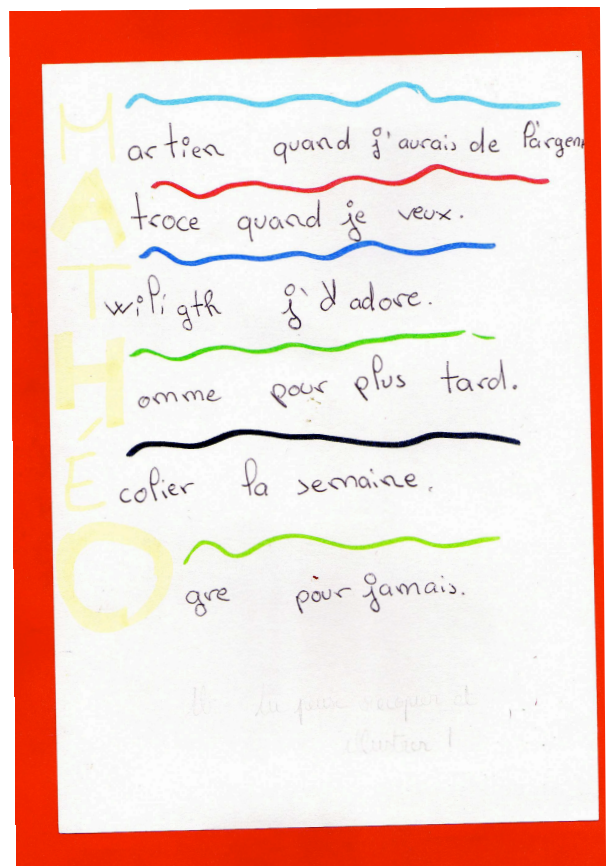 Martien quand j'aurais de l'argent
Atroce quand je veux.
Twiligth j'd'adore.
Homme pour plus tard.
Écolier la semaine.
Ogre pour jamais.
tu peux